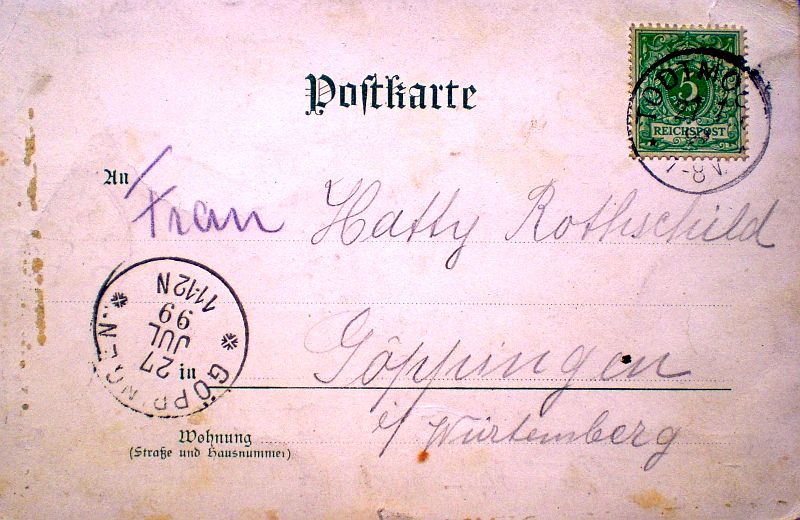 Postkarte
5
REICHSPOST
TODTMOO
7-8N.
An
Frau Hatty Rothschild
GÖPPINGEN.
27
JUL
99
11-12N
in
Göppingen
i/ Würtemberg
Wohnung
(Straße und Hausnummer)